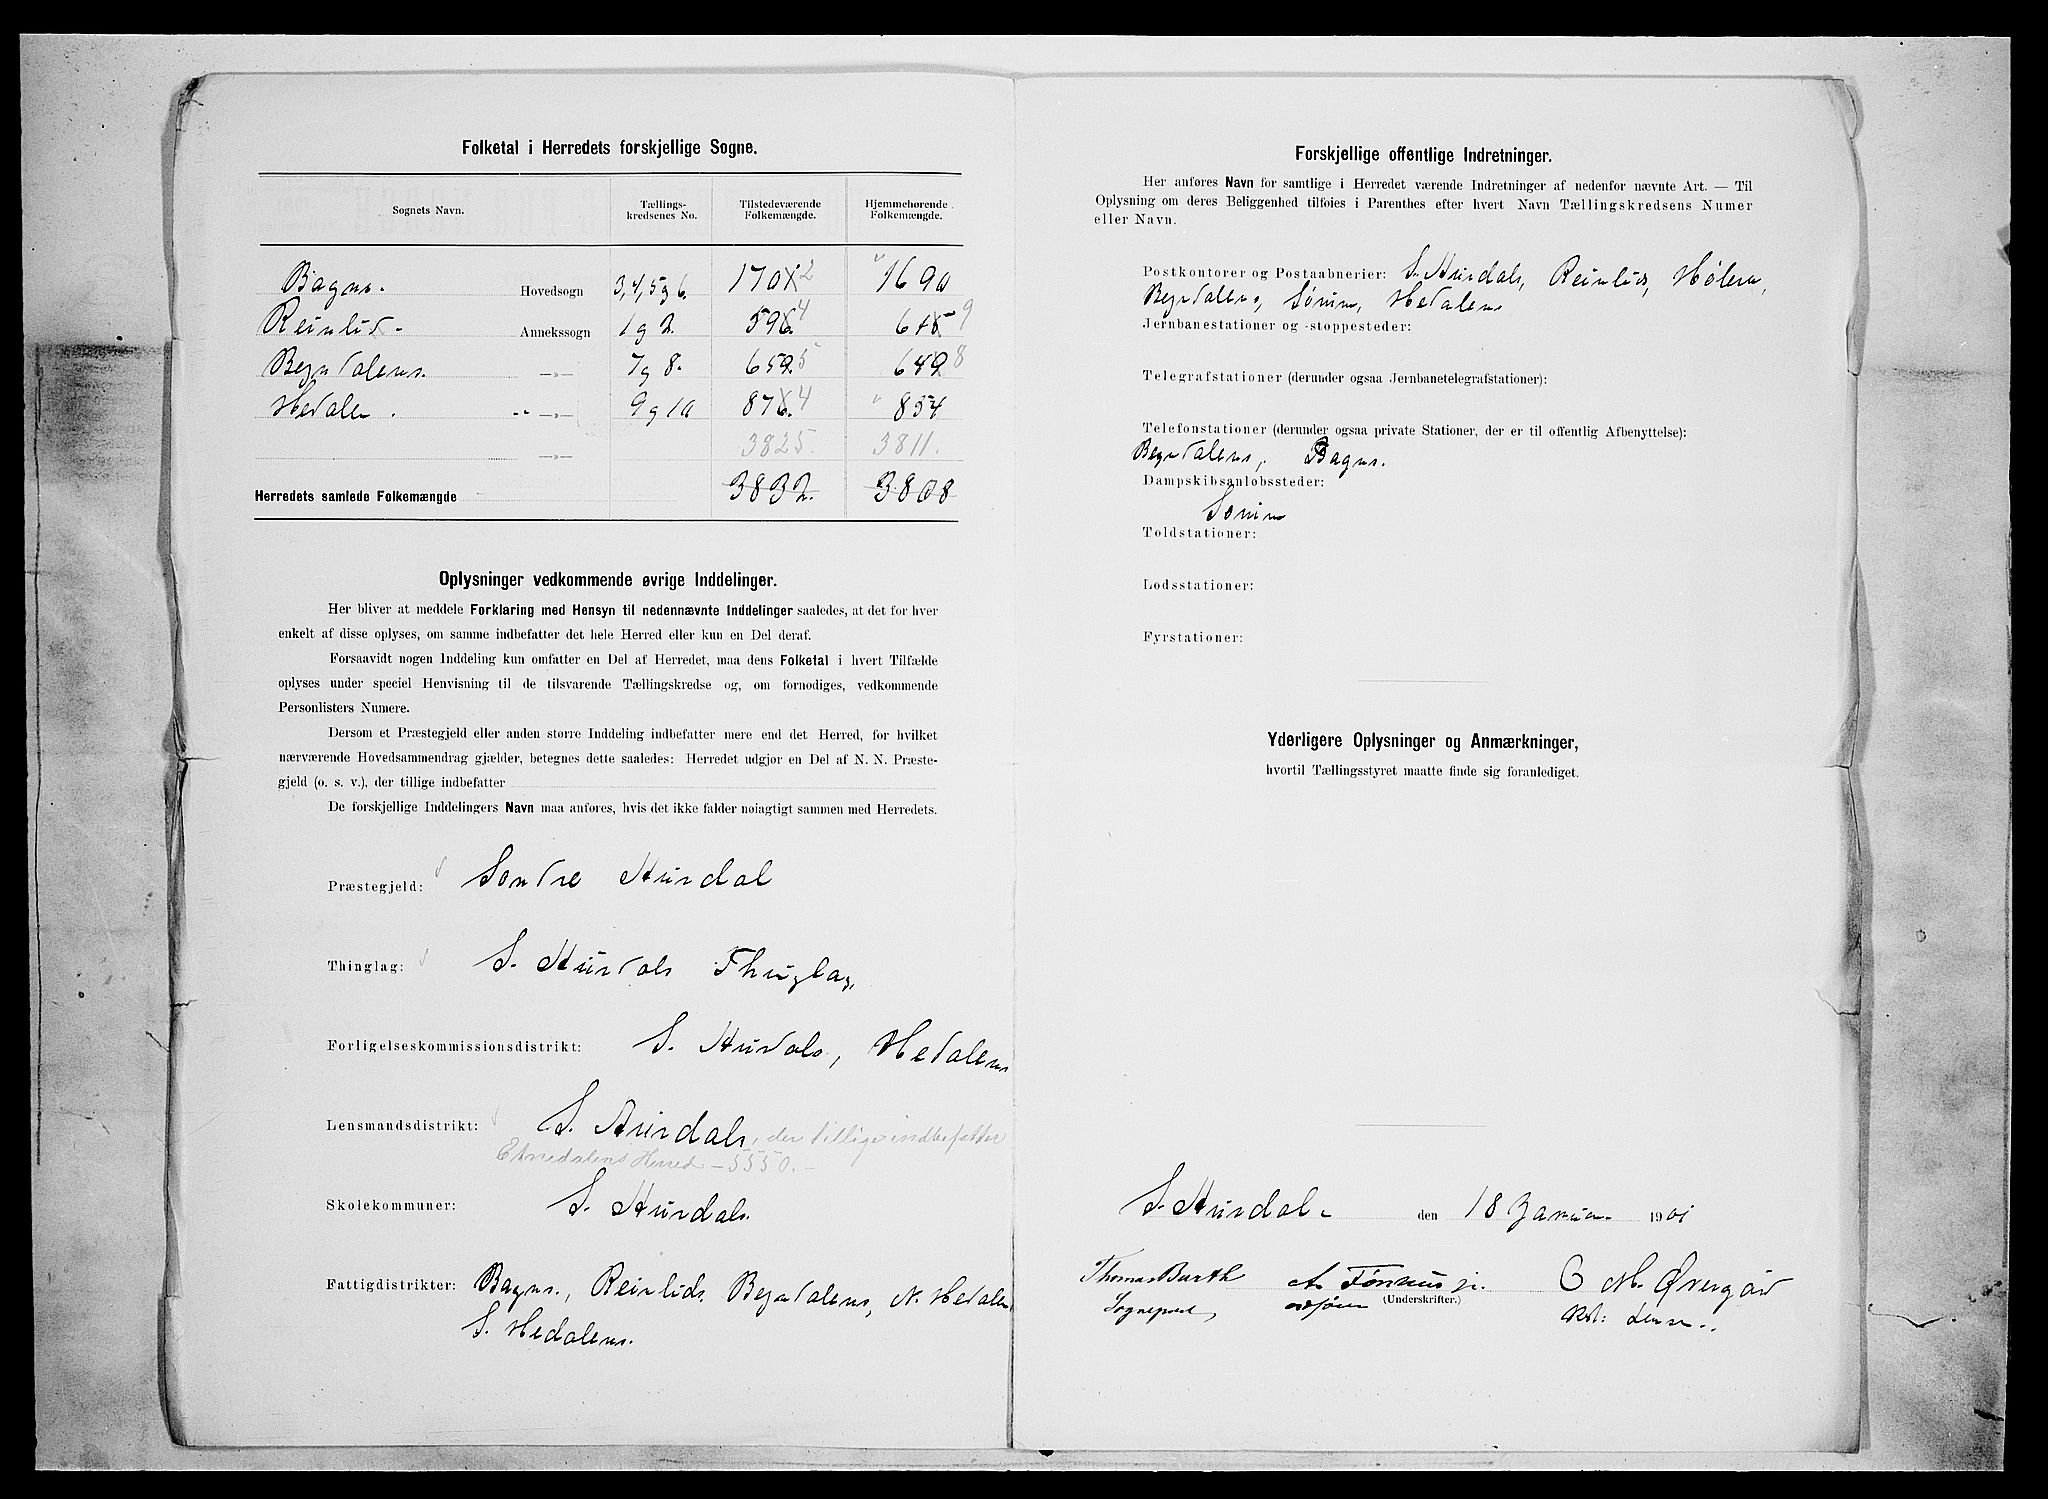 Folketal i Herredets forskjellige Sogne.
Sognets Navn. Tællings-kredsenes No. Tilstedeværende Folkemængde. Hjemmehørende Folkemængde.
Bagns. Hovedsogn 3, 4, 5 g 6. 1701 2 1690
Reinlid. Annekssogn 1 g 2. 596. 4 615 9
Begndalens. —„— 7 g 8. 659. 5 649 8
Hedalen. „ —„— 9 g 10 876. 4 854
—„— 3825. 3811.
Herredets samlede Folkemængde 3832. 3808
Oplysninger vedkommende øvrige Inddelinger.
Her bliver at meddele Forklaring med Hensyn til nedennævnte Inddelinger saaledes, at det for hver
enkelt af disse oplyses, om samme indbefatter det hele Herred eller kun en Del deraf.
Forsaavidt nogen Inddeling kun omfatter en Del af Herredet, maa dens Folketal i hvert Tilfælde
oplyses under speciel Henvisning til de tilsvarende Tællingskredse og, om fornødiges, vedkommende
Personlisters Numere.
Dersom et Præstegjeld eller anden større Inddeling indbefatter mere end det Herred, for hvilket
nærværende Hovedsammendrag gjælder, betegnes dette saaledes: Herredet udgjør en Del af N. N. Præste-
gjeld (o. s. v.), der tillige indbefatter
De forskjellige Inddelingers Navn maa anføres, hvis det ikke falder nøiagtigt sammen med Herredets.
Præstegjeld: Søndre Aurdal
Thinglag: S. Aurdals Thinglag,
Forligelseskommissionsdistrikt: S. Aurdals, Hedalens
Lensmandsdistrikt: S. Aurdals, der tillige indbefatter
Etnedalens Herred – 5550. –
Skolekommuner: S. Aurdals.
Fattigdistrikter: Bagns., Reinlids. Begndalens, N. Hedalens
S. Hedalens.
Forskjellige offentlige Indretninger.
Her anføres Navn for samtlige i Herredet værende Indretninger af nedenfor nævnte Art. — Til
Oplysning om deres Beliggenhed tilføies i Parenthes efter hvert Navn Tællingskredsens Numer
eller Navn.
Postkontorer og Postaabnerier: S. Aurdals, Reinlids, Hølera,
Begndalens, Sørum, Hedalens
Jernbanestationer og -stoppesteder:
Telegrafstationer (derunder ogsaa Jernbanetelegrafstationer):
Telefonstationer (derunder ogsaa private Stationer, der er til offentlig Afbenyttelse):
Begndalens, Bagns.
Dampskibsanløbssteder:
Sørum
Toldstationer:
Lodsstationer:
Fyrstationer:
Yderligere Oplysninger og Anmærkninger,
hvortil Tællingsstyret maatte finde sig foranlediget.
S. Aurdal den 18 Januar 1901
Thomas Barth A Fønhus jr. O M. Øvergård
Sogneprest, ordfører (Underskrifter.) kst: Lensm.